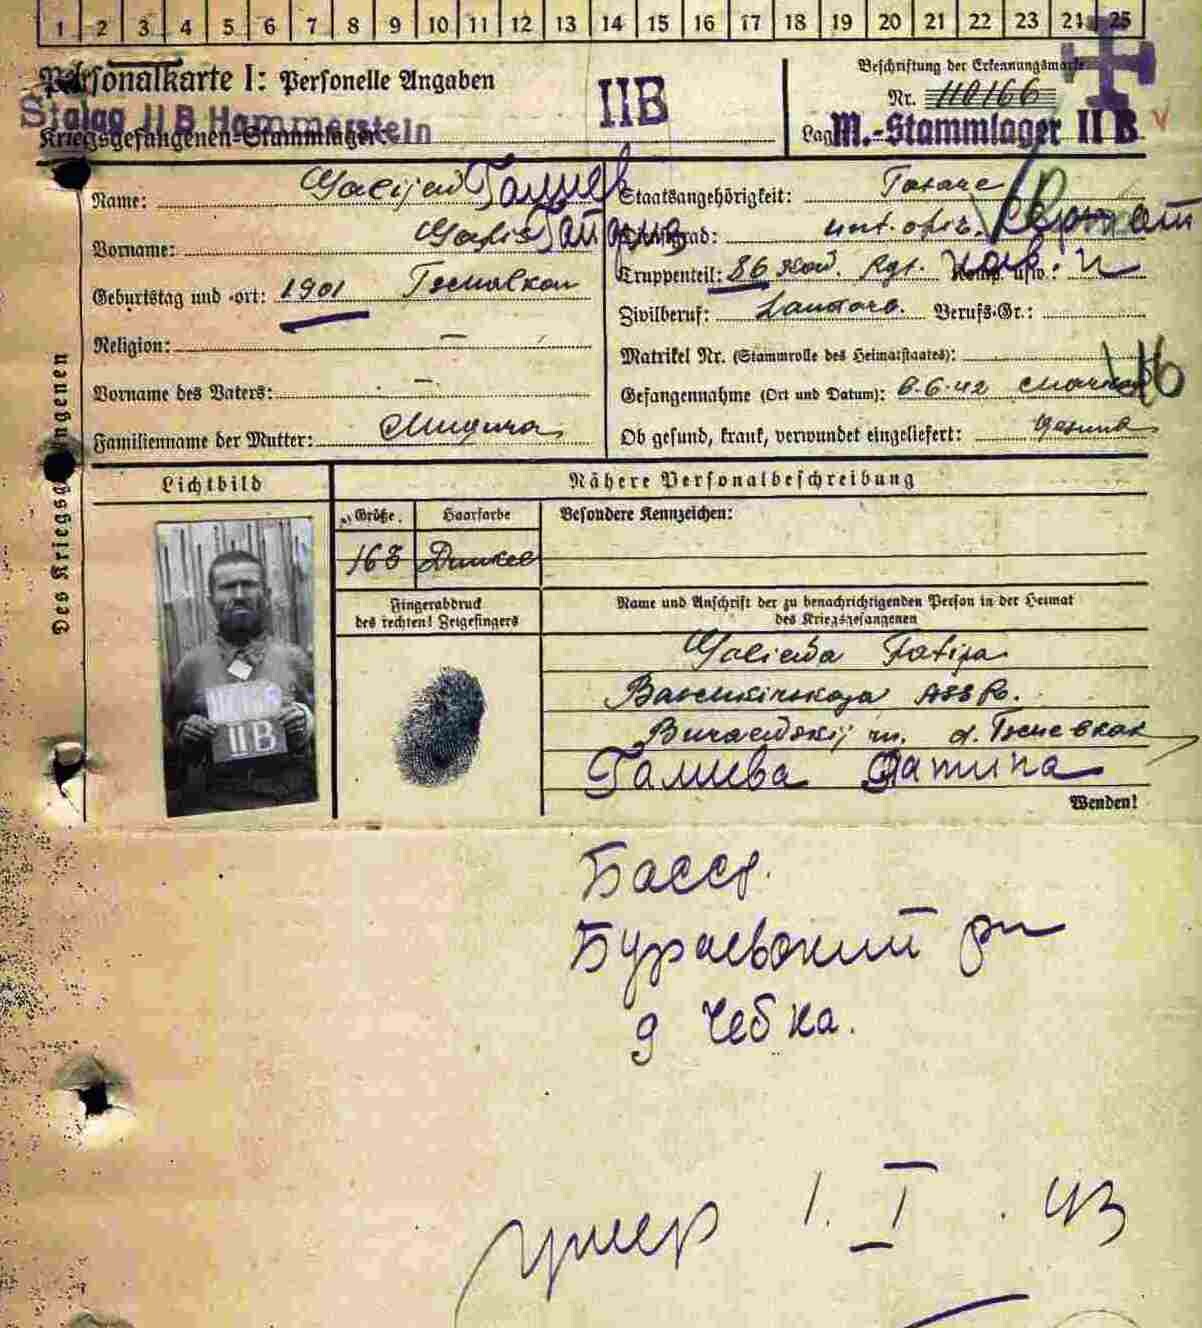 1 2 3 4 5 6 7 8 9 10 11 12 13 14 15 16 17 18 19 20 21 22 23 24 25
Personalkarte I: Personelle Angaben
Stalag II B Hammerstein
Kriegsgefangenen-Stammlager:
IIB
Beschriftung der Erkennungsmarke
Nr. 110166
Lag M.-Stammlager II B
Des Kriegsgefangenen
Name: Galijew Галиев
Vorname: Gafis
Geburtstag und -ort: 1901
Religion: —
Vorname des Vaters: —
Familienname der Mutter:
Staatsangehörigkeit: Tatare
Dienstgrad: unt. ofiz. Сержант
Truppenteil: 86 Kaw. Rgt. Komp. usw.:
Zivilberuf: Landarb. Berufs-Gr.:
Matrikel Nr. (Stammrolle des Heimatstaates):
Gefangennahme (Ort und Datum): 6.6.42
Ob gesund, krank, verwundet eingeliefert: gesund
Lichtbild
Nähere Personalbeschreibung
Größe
Haarfarbe
Besondere Kennzeichen:
163
Dunkel
Fingerabdruck
des rechten! Zeigefingers
Name und Anschrift der zu benachrichtigenden Person in der Heimat
des Kriegsgefangenen
Galiewa Fatipa
Baschkirskaja ASSR.
Buraewskij rn. d.
Галиева Фатипа
IIB
Wenden!
Басср.
Бураевский рн
д Чебка.
умер 1. I. 43